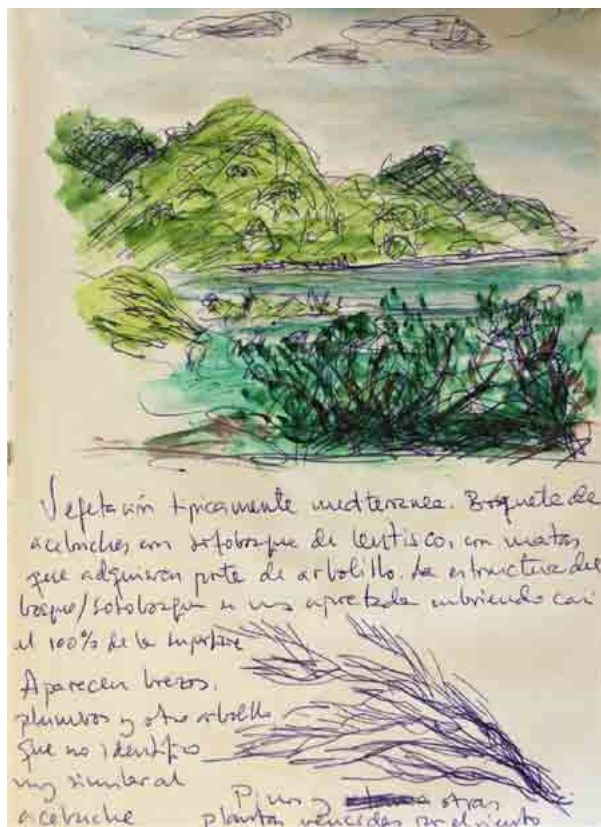 Vegetación típicamente mediterranea. Bosquete de
acebuches con sotobosque de lentisco, con matas
que adquieren porte de arbolillo. La estructura del
bosque/sotobosque es muy apretada cubriendo casi
el 100% de la superficie
Aparecen brezos,
y otro arbolillo
que no identifico
muy similar al
acebuche
Pinos y otras
plantas vencidas por el viento